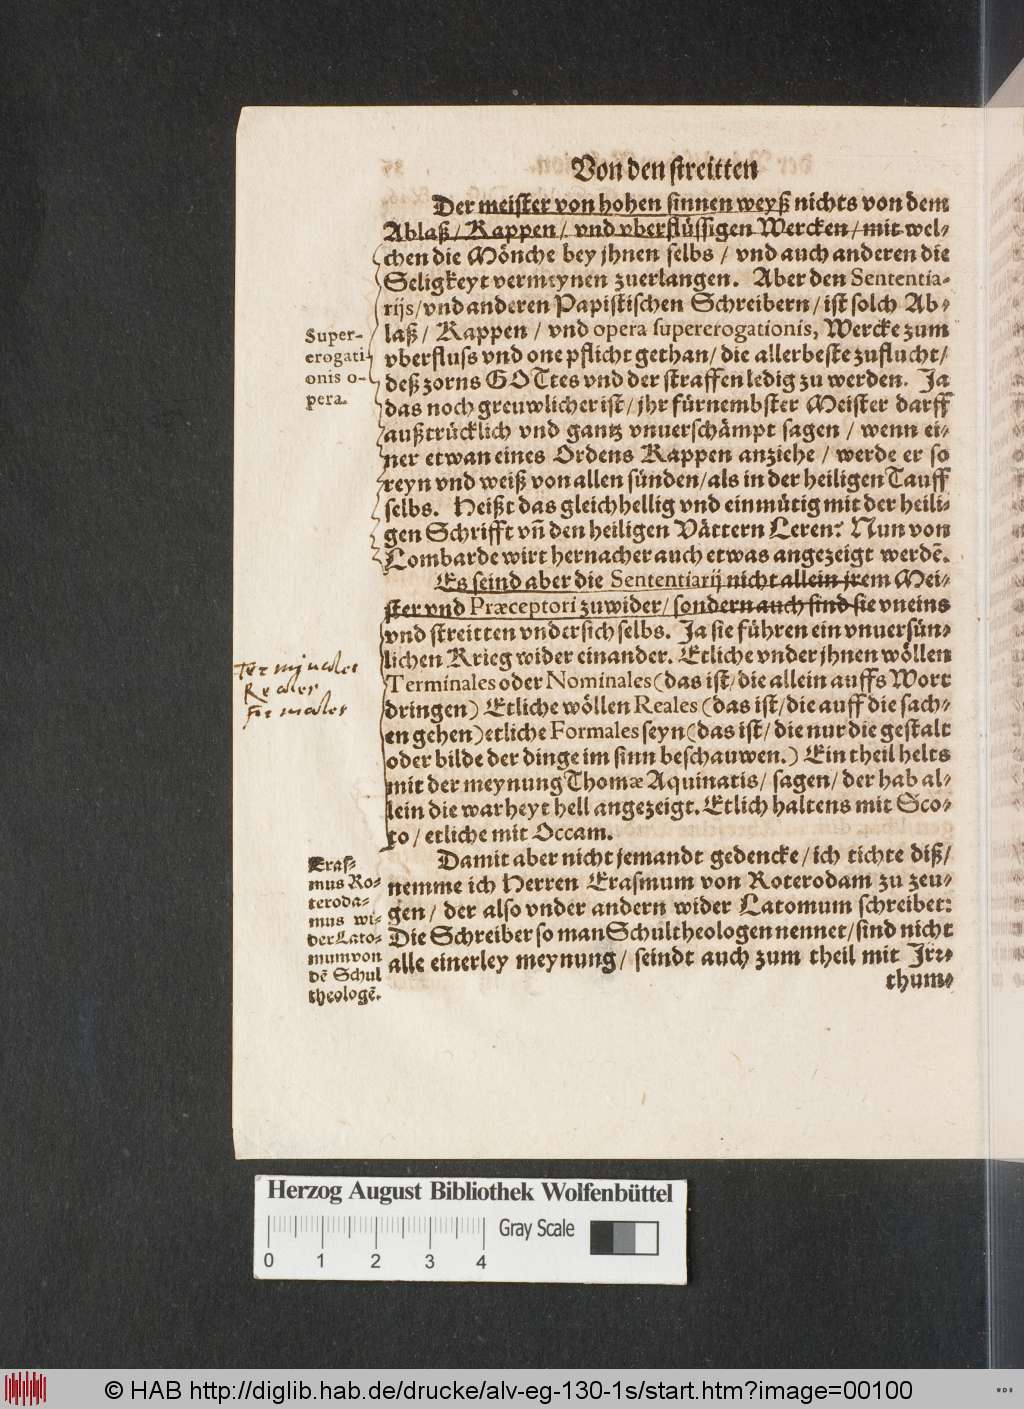 Von den streitten
Der meister von hohen sinnen weyß nichts von dem
Ablaß / Kappen / vnd vberflüssigen Wercken / mit wel-
chen die Mönche bey jhnen selbs / vnd auch anderen die
Seligkeyt vermeynen zuerlangen. Aber den Sententia-
rijs / vnd anderen Papistischen Schreibern / ist solch Ab-
laß / Kappen / vnd opera supererogationis, Wercke zum
vberfluss vnd one pflicht gethan / die allerbeste zuflucht /
deß zorns GOTtes vnd der straffen ledig zu werden. Ja
das noch greuwlicher ist / jhr fürnembster Meister darff
außtrücklich vnd gantz vnuerschämpt sagen / wenn ei-
ner etwan eines Ordens Kappen anziehe / werde er so
reyn vnd weiß von allen sünden / als in der heiligen Tauff
selbs. Heißt das gleichhellig vnd einmütig mit der heili-
gen Schrifft vñ den heiligen Vättern Leren? Nun von
Lombarde wirt hernacher auch etwas angezeigt werdẽ.
Super-
erogati-
onis o-
pera.
Es seind aber die Sententiarij nicht allein jrem Mei-
ster vnd Præceptori zuwider / sondern auch sind sie vneins
vnd streitten vnder sich selbs. Ja sie führen ein vnuersün-
lichen Krieg wider einander. Etliche vnder jhnen wöllen
Terminales oder Nominales (das ist / die allein auffs Wort
dringen) Etliche wöllen Reales (das ist / die auff die sach-
en gehen) etliche Formales seyn (das ist / die nur die gestalt
oder bilde der dinge im sinn beschauwen.) Ein theil helts
mit der meynung Thomæ Aquinatis / sagen / der hab al-
lein die warheyt hell angezeigt. Etlich haltens mit Sco-
to / etliche mit Occam.
Terminales
Reales
Formales
Damit aber nicht jemandt gedencke / ich tichte diß /
nemme ich Herren Erasmum von Roterodam zu zeu-
gen / der also vnder andern wider Latomum schreibet:
Die Schreiber so man Schultheologen nennet / sind nicht
alle einerley meynung / seindt auch zum theil mit Irr-
thum-
Eras-
mus Ro-
teroda-
mus wi-
der Lato-
mum von
dẽ Schul
theologẽ.
Herzog August Bibliothek Wolfenbüttel
Gray Scale
0 1 2 3 4
© HAB http://diglib.hab.de/drucke/alv-eg-130-1s/start.htm?image=00100